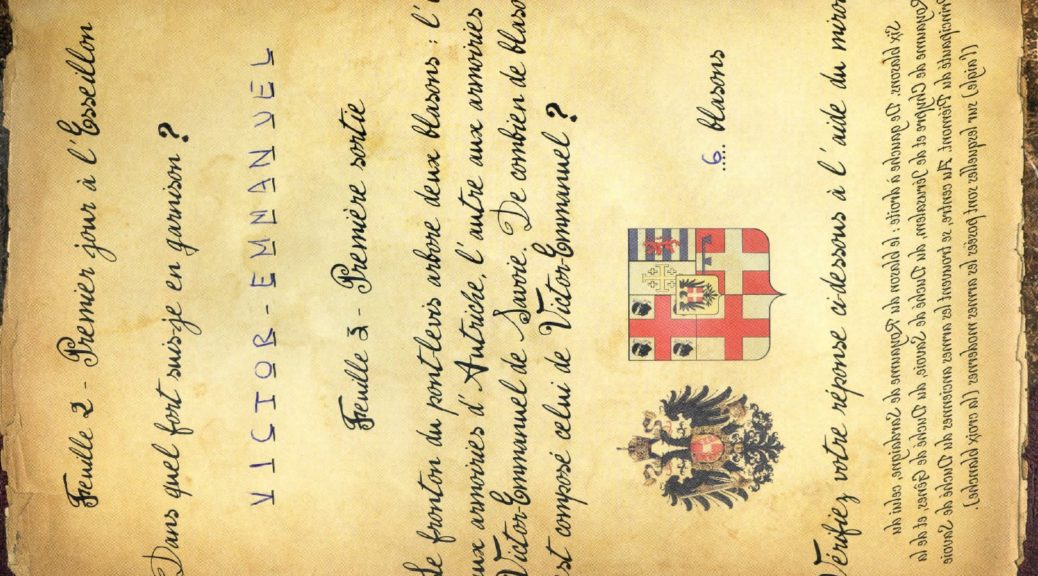 Feuille 2 - Premier jour à l'Esseillon
Dans quel fort suis-je en garnison ?
VICTOR-EMMANUEL
Feuille 3 - Première sortie
Le fronton du pont-levis arbore deux blasons : l'
aux armoiries d'Autriche, l'autre aux armoiries
Victor-Emmanuel de Savoie. De combien de blaso
est composé celui de Victor-Emmanuel ?
6 blasons
Vérifiez votre réponse ci-dessous à l'aide du miro
Six blasons. De gauche à droite : le blason du Royaume de Sardaigne, celui du
Royaume de Chypre et de Jérusalem, du Duché de Savoie, du Duché de Gênes, et de la
Principauté du Piémont. Au centre, se trouvent les armes anciennes du Duché de Savoie
(l'aigle) sur lesquelles sont posées les armes modernes (la croix blanche).